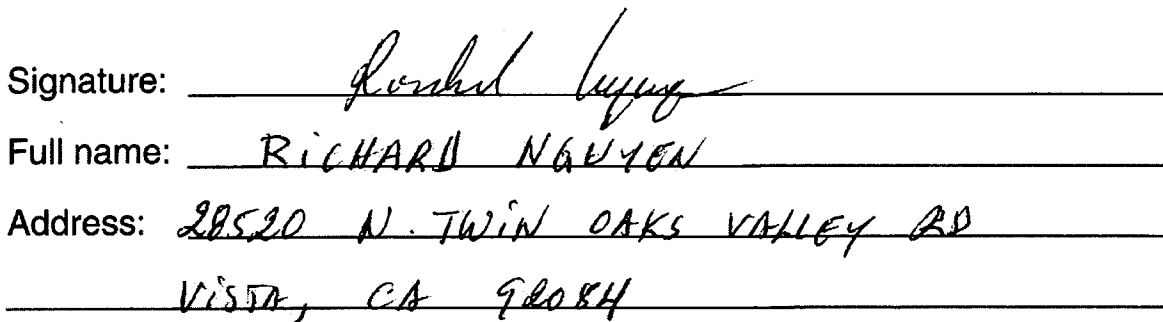 Signature: Richard Nguyen
Full name: RiCHARD NGUYEN
Address: 28520 N. TWiN OAKS VALLEY RD
ViSTA, CA 92084